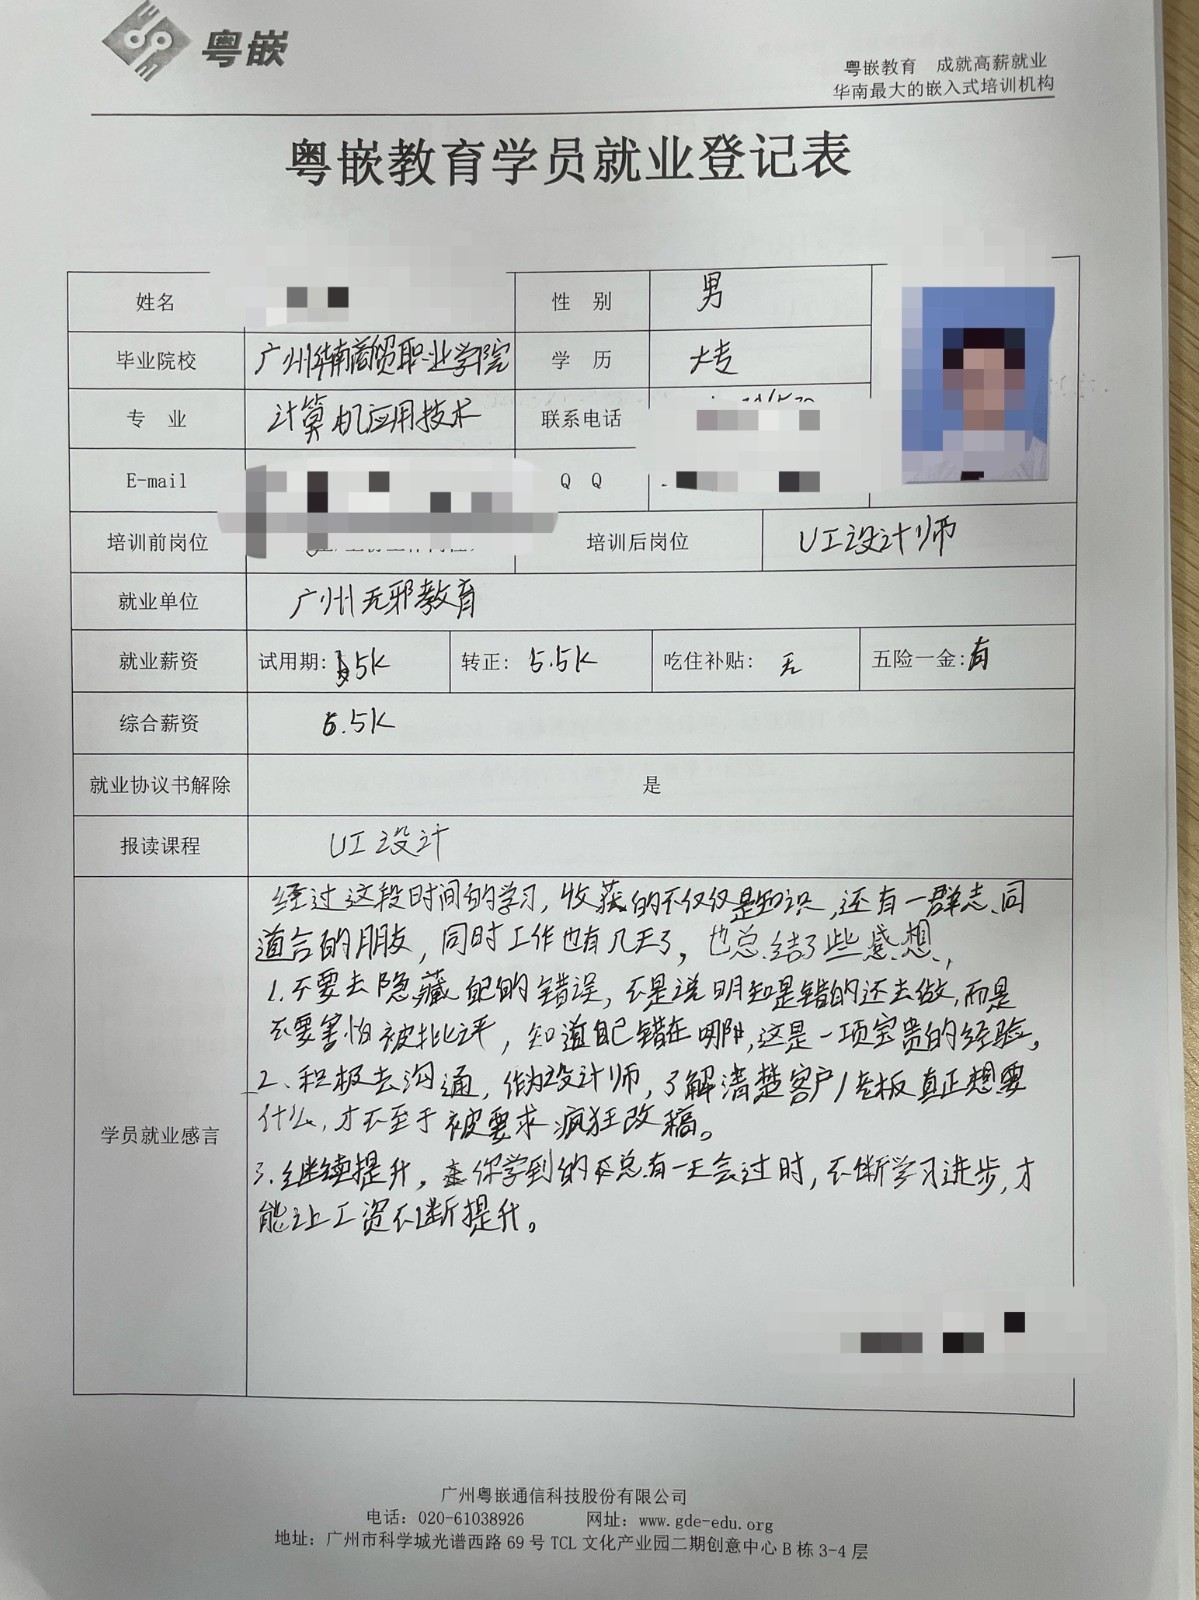 粤嵌
粤嵌教育 成就高薪就业
华南最大的嵌入式培训机构
粤嵌教育学员就业登记表
姓名 性 别 男
毕业院校 广州华南商贸职业学院 学 历 大专
专 业 计算机应用技术 联系电话
E-mail Q Q
培训前岗位 培训后岗位 UI设计师
就业单位 广州无邪教育
就业薪资 试用期: 5K 转正: 5.5K 吃住补贴: 无 五险一金: 有
综合薪资 5.5K
就业协议书解除 是
报读课程 UI设计
经过这段时间的学习,收获的不仅仅是知识,还有一群志同
道合的朋友,同时工作也有几天了,也总结了些感想,
1.不要去隐藏自己的错误,不是说明知是错的还去做,而是
不要害怕被批评,知道自己错在哪,这是一项宝贵的经验。
2、积极去沟通,作为设计师,了解清楚客户/老板真正想要
什么,才不至于被要求疯狂改稿。
学员就业感言
3.继续提升,你学到的总有一天会过时,不断学习进步,才
能让工资不断提升。
广州粤嵌通信科技股份有限公司
电话: 020-61038926 网址: www.gde-edu.org
地址: 广州市科学城光谱西路 69 号 TCL 文化产业园二期创意中心 B 栋 3-4 层